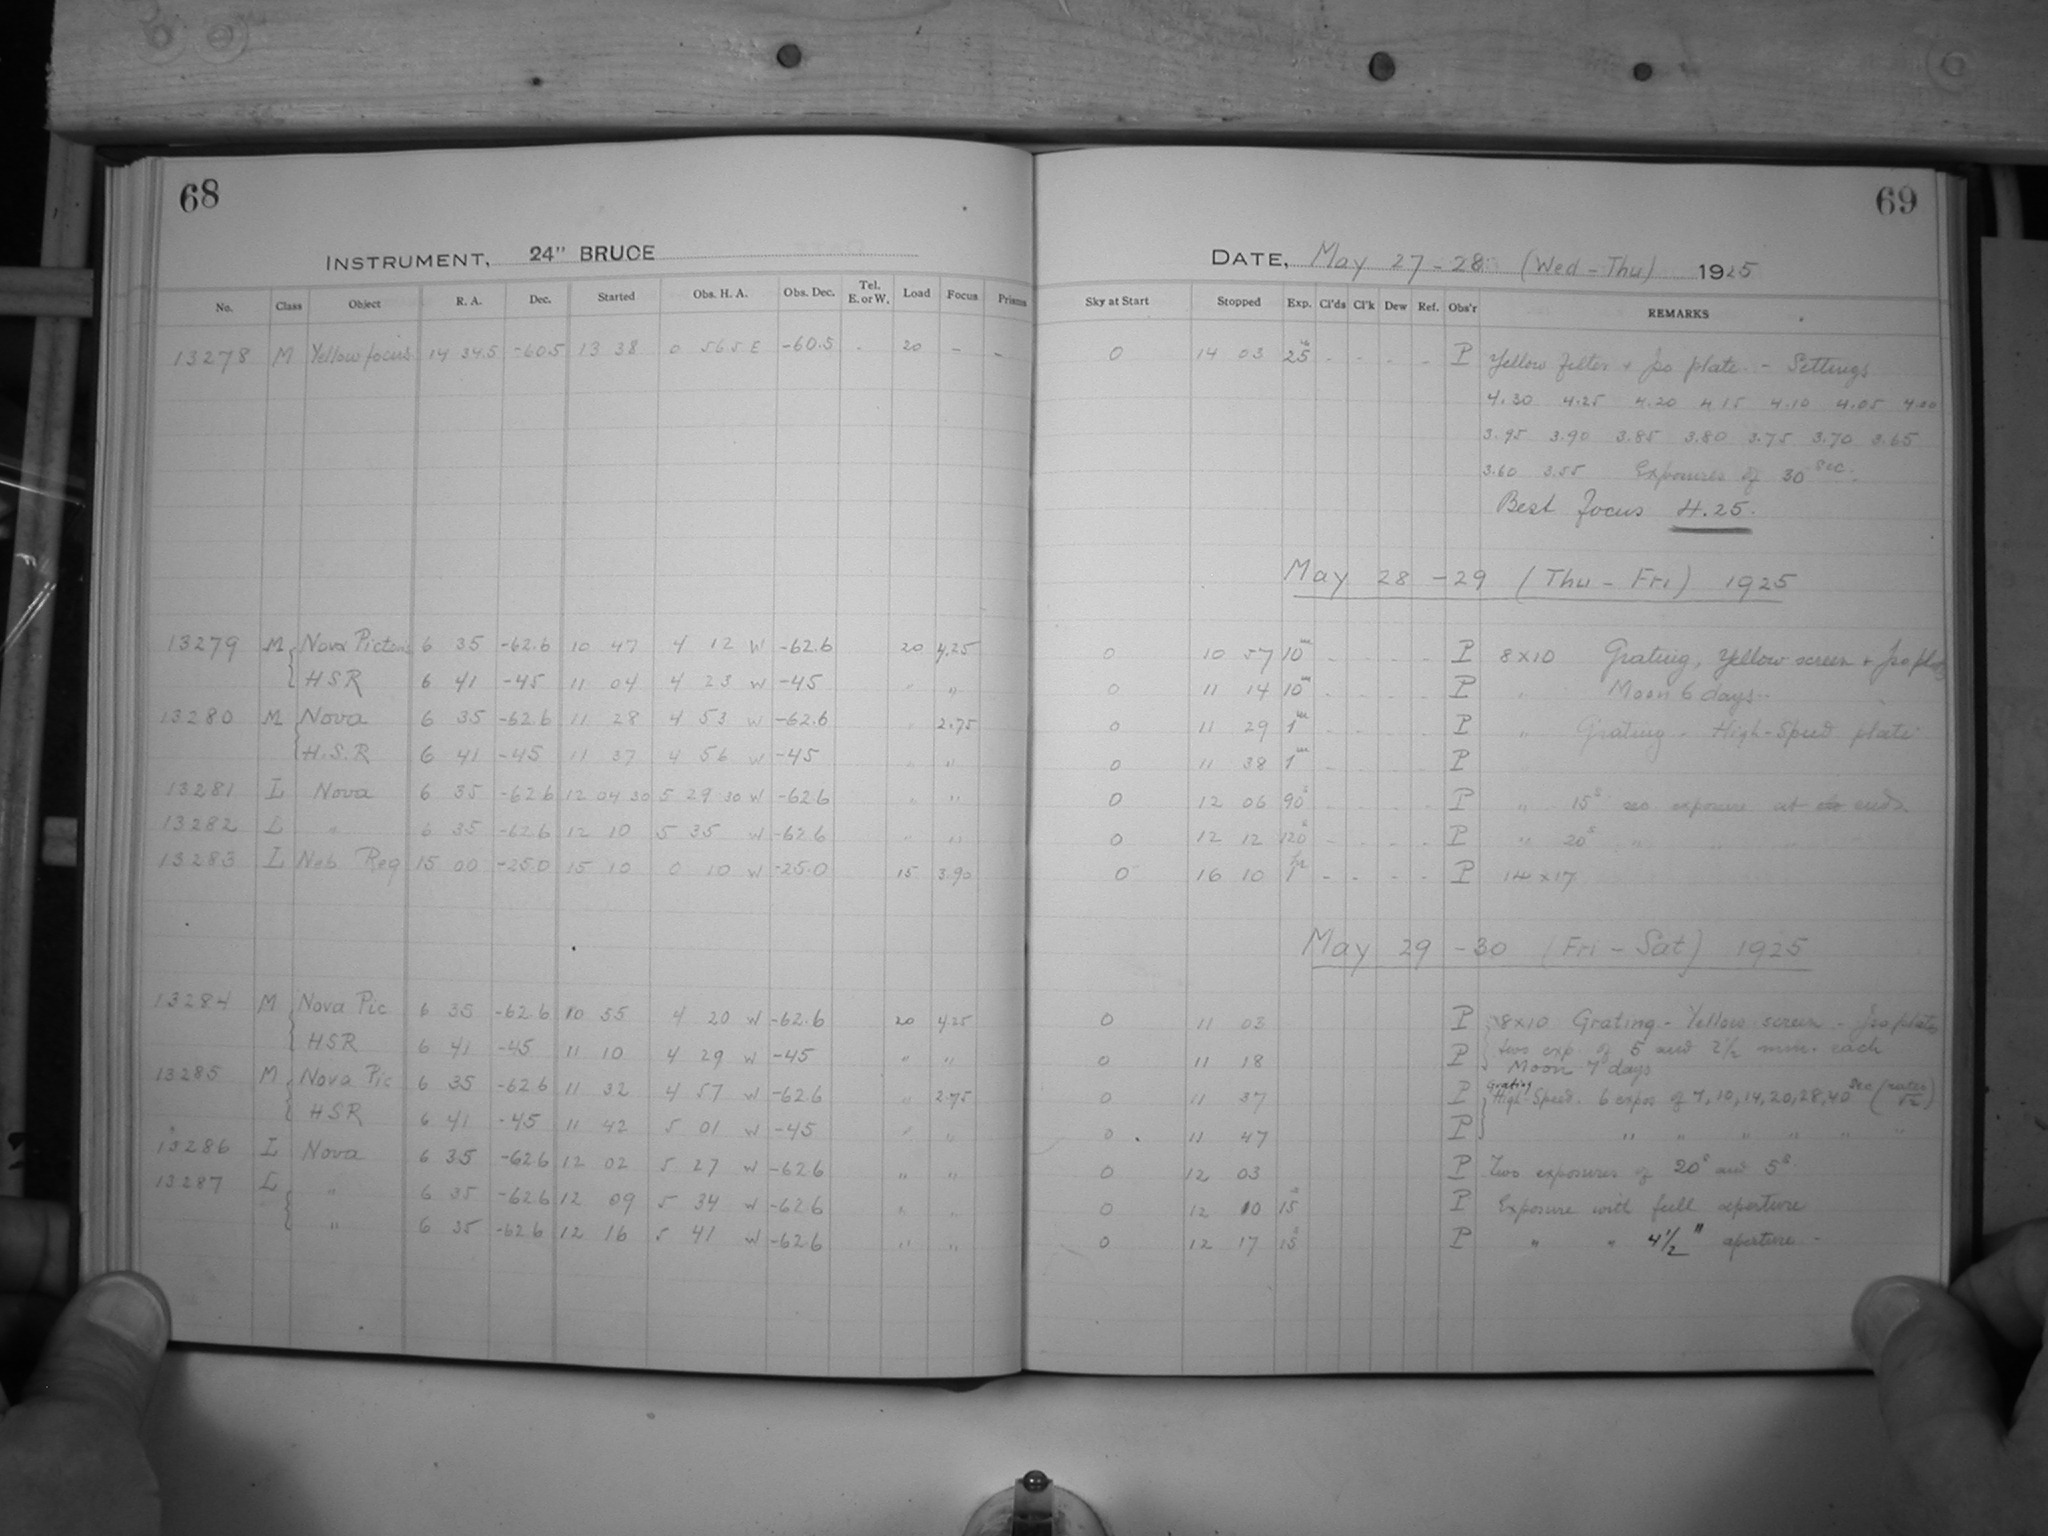 68
INSTRUMENT, 24" BRUCE
No. Class Object R. A. Dec. Started Obs. H. A. Obs. Dec. Tel. E. or W. Load Focus Prisms
13278 M Yellow focus 14 34.5 -60.5 13 38 0 56.5 E -60.5 - 20 - -
13279 M Nova Pictoris 6 35 -62.6 10 47 4 12 W -62.6 20 4.25
HSR 6 41 -45 11 04 4 23 W -45 " "
13280 M Nova 6 35 -62.6 11 28 4 53 W -62.6 " 2.75
H.S.R 6 41 -45 11 37 4 56 W -45 " "
13281 L Nova 6 35 -62.6 12 04 30 5 29 30 W -62.6 " "
13282 L " 6 35 -62.6 12 10 5 35 W -62.6 " "
13283 L Neb Reg 15 00 -25.0 15 10 0 10 W -25.0 15 3.90
13284 M Nova Pic 6 35 -62.6 10 55 4 20 W -62.6 20 4.25
HSR 6 41 -45 11 10 4 29 W -45 " "
13285 M Nova Pic 6 35 -62.6 11 32 4 57 W -62.6 " 2.75
HSR 6 41 -45 11 42 5 01 W -45 " "
13286 L Nova 6 35 -62.6 12 02 5 27 W -62.6 " "
13287 L " 6 35 -62.6 12 09 5 34 W -62.6 " "
" 6 35 -62.6 12 16 5 41 W -62.6 " "
69
DATE, May 27-28 (Wed-Thu) 1925
Sky at Start Stopped Exp. Cl'ds Cl'k Dew Ref. Obs'r REMARKS
0 14 03 25m - - - - P Yellow filter + Iso plate - Settings
4.30 4.25 4.20 4.15 4.10 4.05 4.00
3.95 3.90 3.85 3.80 3.75 3.70 3.65
3.60 3.55 Exposures of 30 sec.
Best focus 4.25.
May 28-29 (Thu-Fri) 1925
0 10 57 10m - - - - P 8x10 Grating, Yellow screen + Iso plate
0 11 14 10m - - - - P " Moon 6 days
0 11 29 1m - - - - P " Grating - High-Speed plate
0 11 38 1m - - - - P "
0 12 06 90s - - - - P " 15s exposure at ends
0 12 12 120s - - - - P " 20s " "
0 16 10 1hr - - - - P 14x17
May 29-30 (Fri-Sat) 1925
0 11 03 P 8x10 Grating - Yellow screen - Iso plate
0 11 18 P two exp. of 5 and 2½ min. each
Moon 7 days
0 11 37 P Grating High-Speed. 6 expos of 7, 10, 14, 20, 28, 40 sec (ratio √2)
0 11 47 P " " " " " "
0 12 03 P Two exposures of 20s and 5s
0 12 10 15s P Exposure with full aperture
0 12 17 15s P " " 4½" aperture -